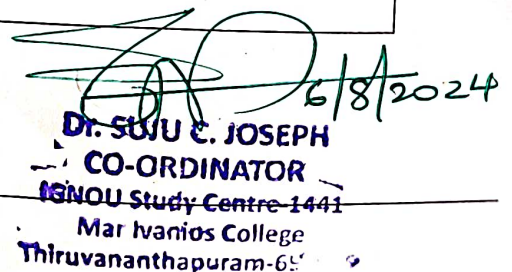 6/8/2024
Dr. SUJU C. JOSEPH
CO-ORDINATOR
IGNOU Study Centre-1441
Mar Ivanios College
Thiruvananthapuram-69